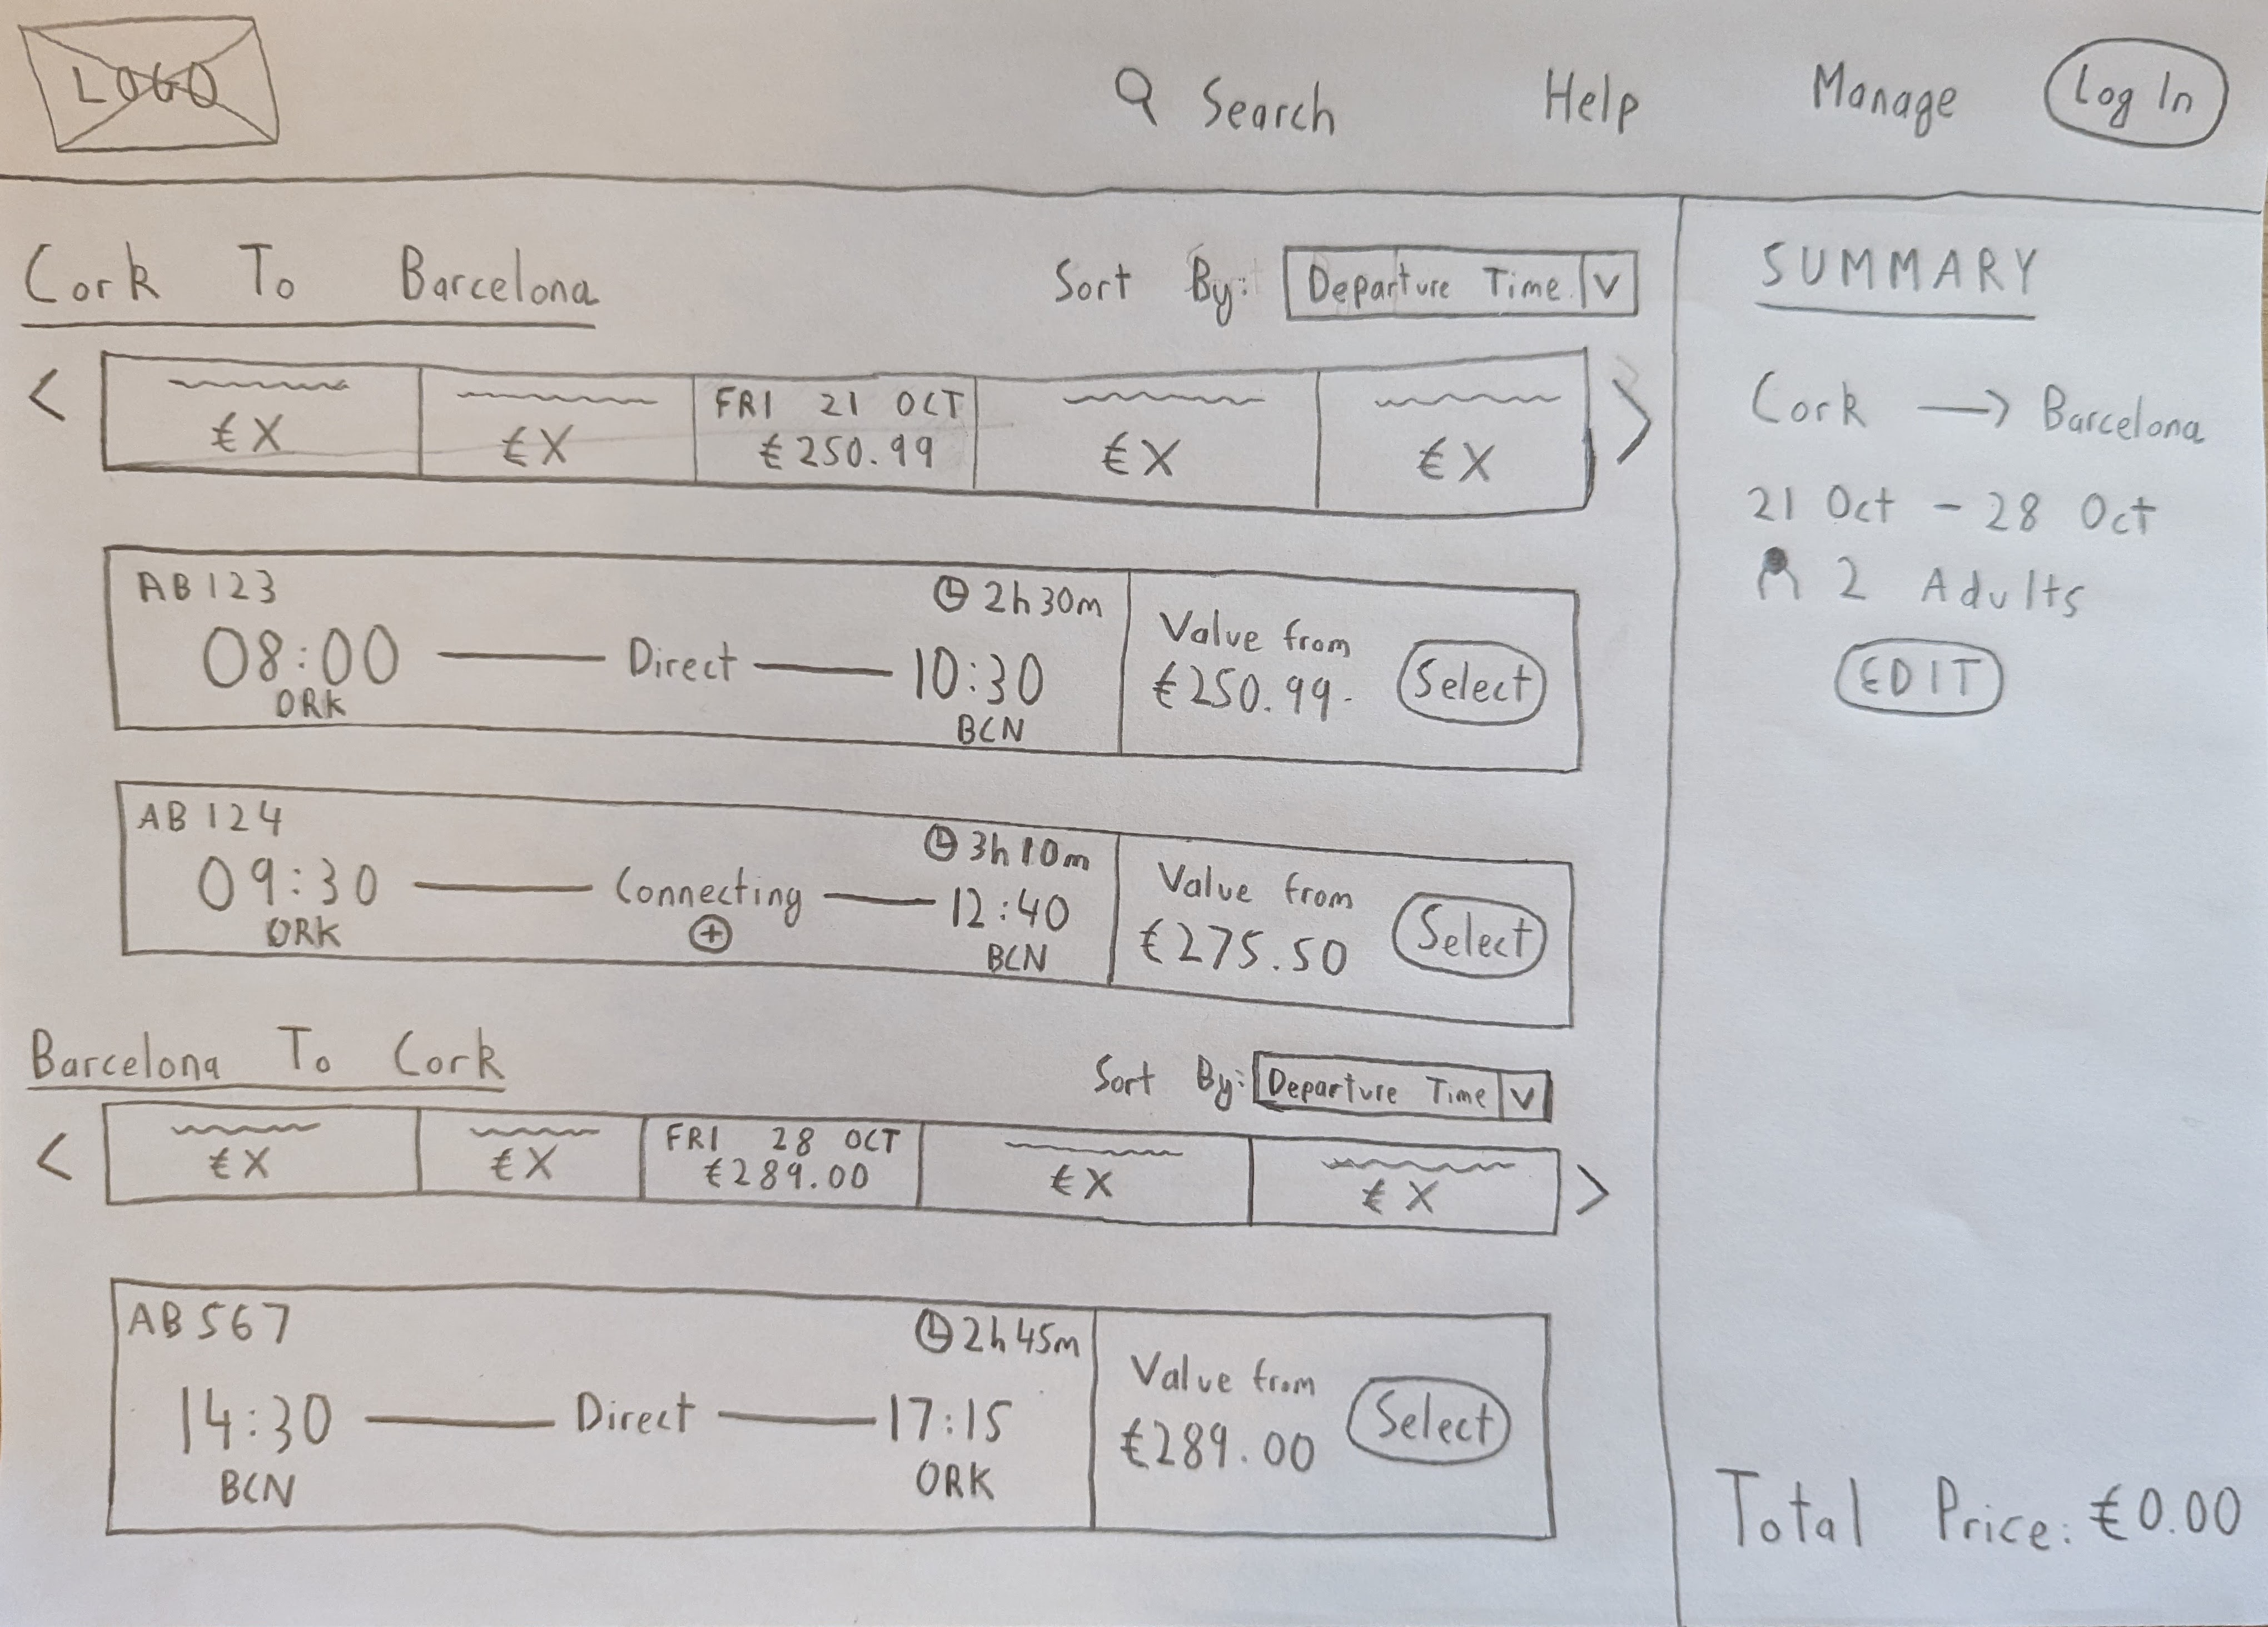 LOGO
Search Help Manage Log In
Cork To Barcelona
Sort By: Departure Time V
< €X €X FRI 21 OCT €250.99 €X €X >
AB123
2h30m
08:00 Direct 10:30
ORK BCN
Value from
€250.99
Select
AB124
3h10m
09:30 Connecting 12:40
+
ORK BCN
Value from
€275.50
Select
Barcelona To Cork
Sort By: Departure Time V
< €X €X FRI 28 OCT €289.00 €X €X >
AB567
2h45m
14:30 Direct 17:15
BCN ORK
Value from
€289.00
Select
SUMMARY
Cork → Barcelona
21 Oct - 28 Oct
2 Adults
EDIT
Total Price: €0.00